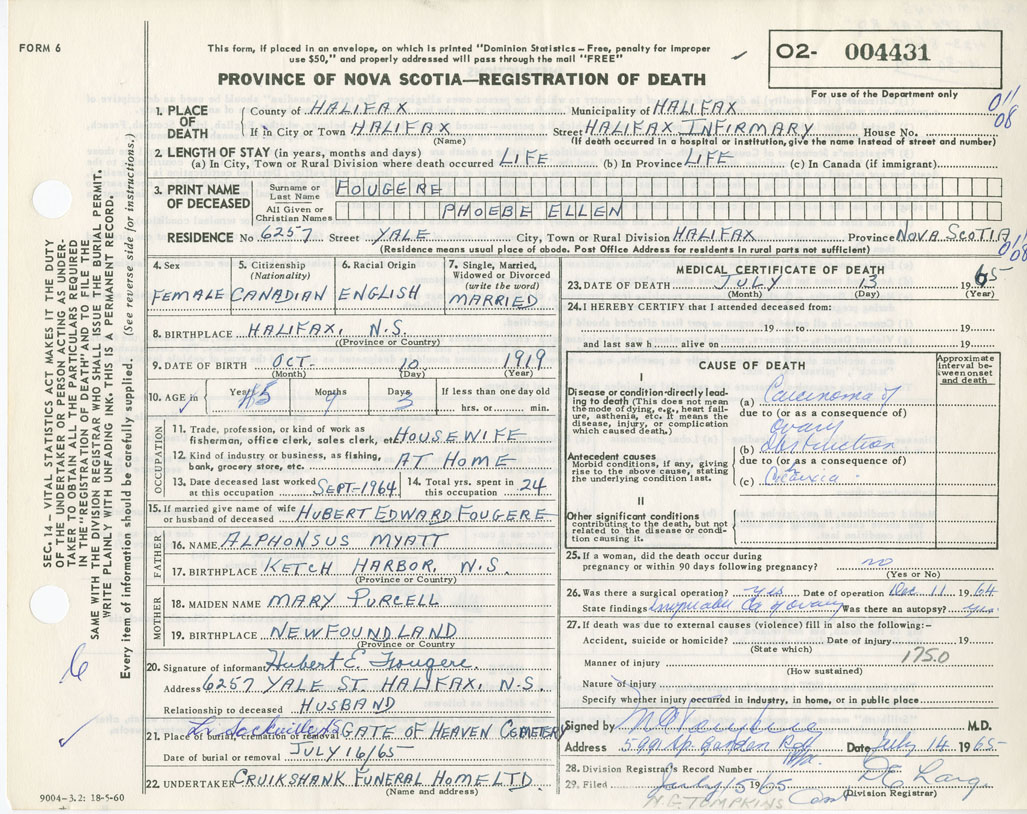 FORM 6
This form, if placed in an envelope, on which is printed "Dominion Statistics – Free, penalty for improper
use $50," and properly addressed will pass through the mail "FREE"
PROVINCE OF NOVA SCOTIA—REGISTRATION OF DEATH
02- 004431
For use of the Department only
011
08
1. PLACE OF DEATH
County of HALIFAX Municipality of HALIFAX
If in City or Town HALIFAX Street HALIFAX INFIRMARY House No.
(Name) (If death occurred in a hospital or institution, give the name instead of street and number)
2. LENGTH OF STAY (in years, months and days)
(a) In City, Town or Rural Division where death occurred LIFE (b) In Province LIFE (c) In Canada (if immigrant)
3. PRINT NAME OF DECEASED
Surname or Last Name FOUGERE
All Given or Christian Names PHOEBE ELLEN
RESIDENCE No. 6257 Street YALE City, Town or Rural Division HALIFAX Province NOVA SCOTIA
011
08
(Residence means usual place of abode. Post Office Address for residents in rural parts not sufficient)
4. Sex FEMALE
5. Citizenship (Nationality) CANADIAN
6. Racial Origin ENGLISH
7. Single, Married, Widowed or Divorced (write the word) MARRIED
8. BIRTHPLACE HALIFAX, N.S.
(Province or Country)
9. DATE OF BIRTH OCT. 10 1919
(Month) (Day) (Year)
10. AGE in Years 45 Months 9 Days 3 If less than one day old
hrs. or min.
OCCUPATION
11. Trade, profession, or kind of work as
fisherman, office clerk, sales clerk, etc. HOUSEWIFE
12. Kind of industry or business, as fishing,
bank, grocery store, etc. AT HOME
13. Date deceased last worked at this occupation SEPT-1964 14. Total yrs. spent in this occupation 24
15. If married give name of wife
or husband of deceased HUBERT EDWARD FOUGERE
FATHER
16. NAME ALPHONSUS MYATT
17. BIRTHPLACE KETCH HARBOR, N.S.
(Province or Country)
MOTHER
18. MAIDEN NAME MARY PURCELL
19. BIRTHPLACE NEWFOUNDLAND
(Province or Country)
20. Signature of informant Hubert E. Fougere.
Address 6257 YALE ST. HALIFAX, N.S.
Relationship to deceased HUSBAND
21. Place of burial, cremation or removal GATE OF HEAVEN CEMETERY
Date of burial or removal JULY 16/65
22. UNDERTAKER CRUIKSHANK FUNERAL HOME LTD.
(Name and address)
MEDICAL CERTIFICATE OF DEATH
23. DATE OF DEATH JULY 13 1965
(Month) (Day) (Year)
24. I HEREBY CERTIFY that I attended deceased from:
19 to 19
and last saw h alive on 19
CAUSE OF DEATH
Approximate interval between onset and death
I
Disease or condition directly leading to death (This does not mean the mode of dying, e.g., heart failure, asthenia, etc. It means the disease, injury, or complication which caused death.)
(a) Carcinoma of
due to (or as a consequence of)
ovary
Antecedent causes
Morbid conditions, if any, giving rise to the above cause, stating the underlying condition last.
(b) Obstruction
due to (or as a consequence of)
(c)
II
Other significant conditions
contributing to the death, but not related to the disease or condition causing it.
25. If a woman, did the death occur during
pregnancy or within 90 days following pregnancy? no
(Yes or No)
26. Was there a surgical operation? yes Date of operation Dec. 11 1964
State findings Inoperable Ca of ovary Was there an autopsy? yes.
27. If death was due to external causes (violence) fill in also the following:–
Accident, suicide or homicide? Date of injury 19
(State which)
1750
Manner of injury
(How sustained)
Nature of injury
Specify whether injury occurred in industry, in home, or in public place
Signed by M.D.
Address 5991 Sp. Garden Rd Hfx. Date July 14 1965
28. Division Registrar's Record Number
29. Filed July 15 1965
(Division Registrar)
W.G. TOMPKINS
SEC. 14 – VITAL STATISTICS ACT MAKES IT THE DUTY
OF THE UNDERTAKER OR PERSON ACTING AS UNDER-
TAKER TO OBTAIN ALL THE PARTICULARS REQUIRED
IN THE "REGISTRATION OF DEATH" AND TO FILE THE
SAME WITH THE DIVISION REGISTRAR WHO SHALL ISSUE THE BURIAL PERMIT.
WRITE PLAINLY WITH UNFADING INK. THIS IS A PERMANENT RECORD.
Every item of information should be carefully supplied. (See reverse side for instructions.)
6
9004-3.2: 18-5-60